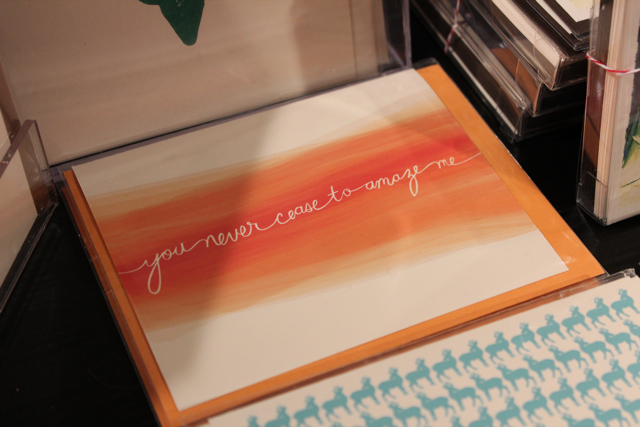 you never cease to amaze me